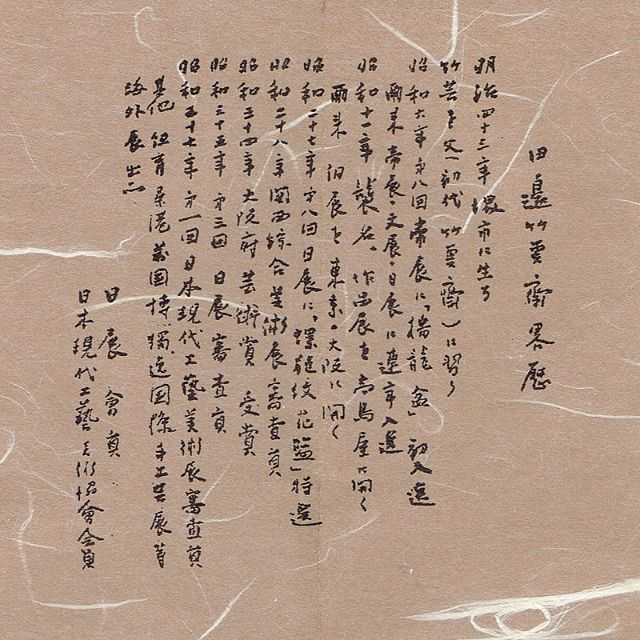 田邊竹雲齋略歴
明治四十三年 堺市に生る
竹芸を父（初代竹雲齋）に習う
昭和六年 第八回帝展に「揚龍盆」初入選
爾来 帝展・文展・日展に連年入選
昭和十二年 襲名。作品展を高島屋に開く
爾来 個展を東京・大阪に開く
昭和二十七年 第八回日展に、「螺旋紋花籃」特選
昭和二十八年 関西綜合美術展審査員
昭和三十四年 大阪府芸術賞 受賞
昭和三十五年 第三回 日展審査員
昭和三十七年 第一回日本現代工藝美術展審査員
其他 紐育 万国博、獨逸国際手工芸展等
海外展出品
日展會員
日本現代工藝美術協會会員